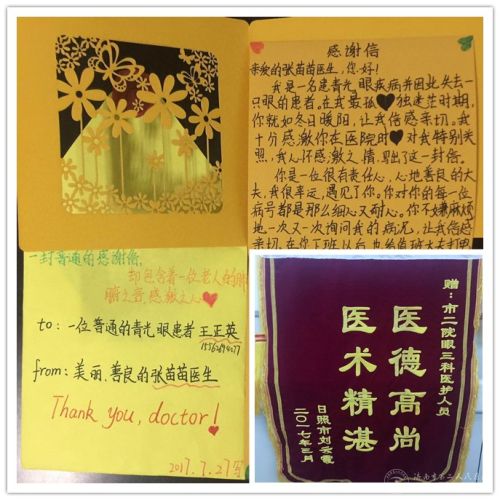 感谢信
亲爱的张苗苗医生，你好！
我是一名患青光眼疾病并因此失去一
只眼的患者，在我最孤独迷茫时期，
你就如冬日暖阳，让我倍感亲切。我
十分感激你在医院时对我特别关
照，我心怀感激之情，写了这一封信。
你是一位很有责任心，心地善良的大
夫，我很幸运，遇见了你。你对你的每一位
病号都是那么细心又耐心。你不嫌麻烦
地一次又一次询问我的病况，让我倍感
亲切。在你下班以后
一封普通的感谢信，
却包含着一位老人的肺
腑之言，感激之心
to：一位普通的青光眼患者 王正英
from：美丽、善良的张苗苗医生
Thank you, doctor!
2017.7.27
赠：市二院眼三科医护人员
医德高尚
医术精湛
日照市刘
二〇一七年三月
济南市第二人民医院